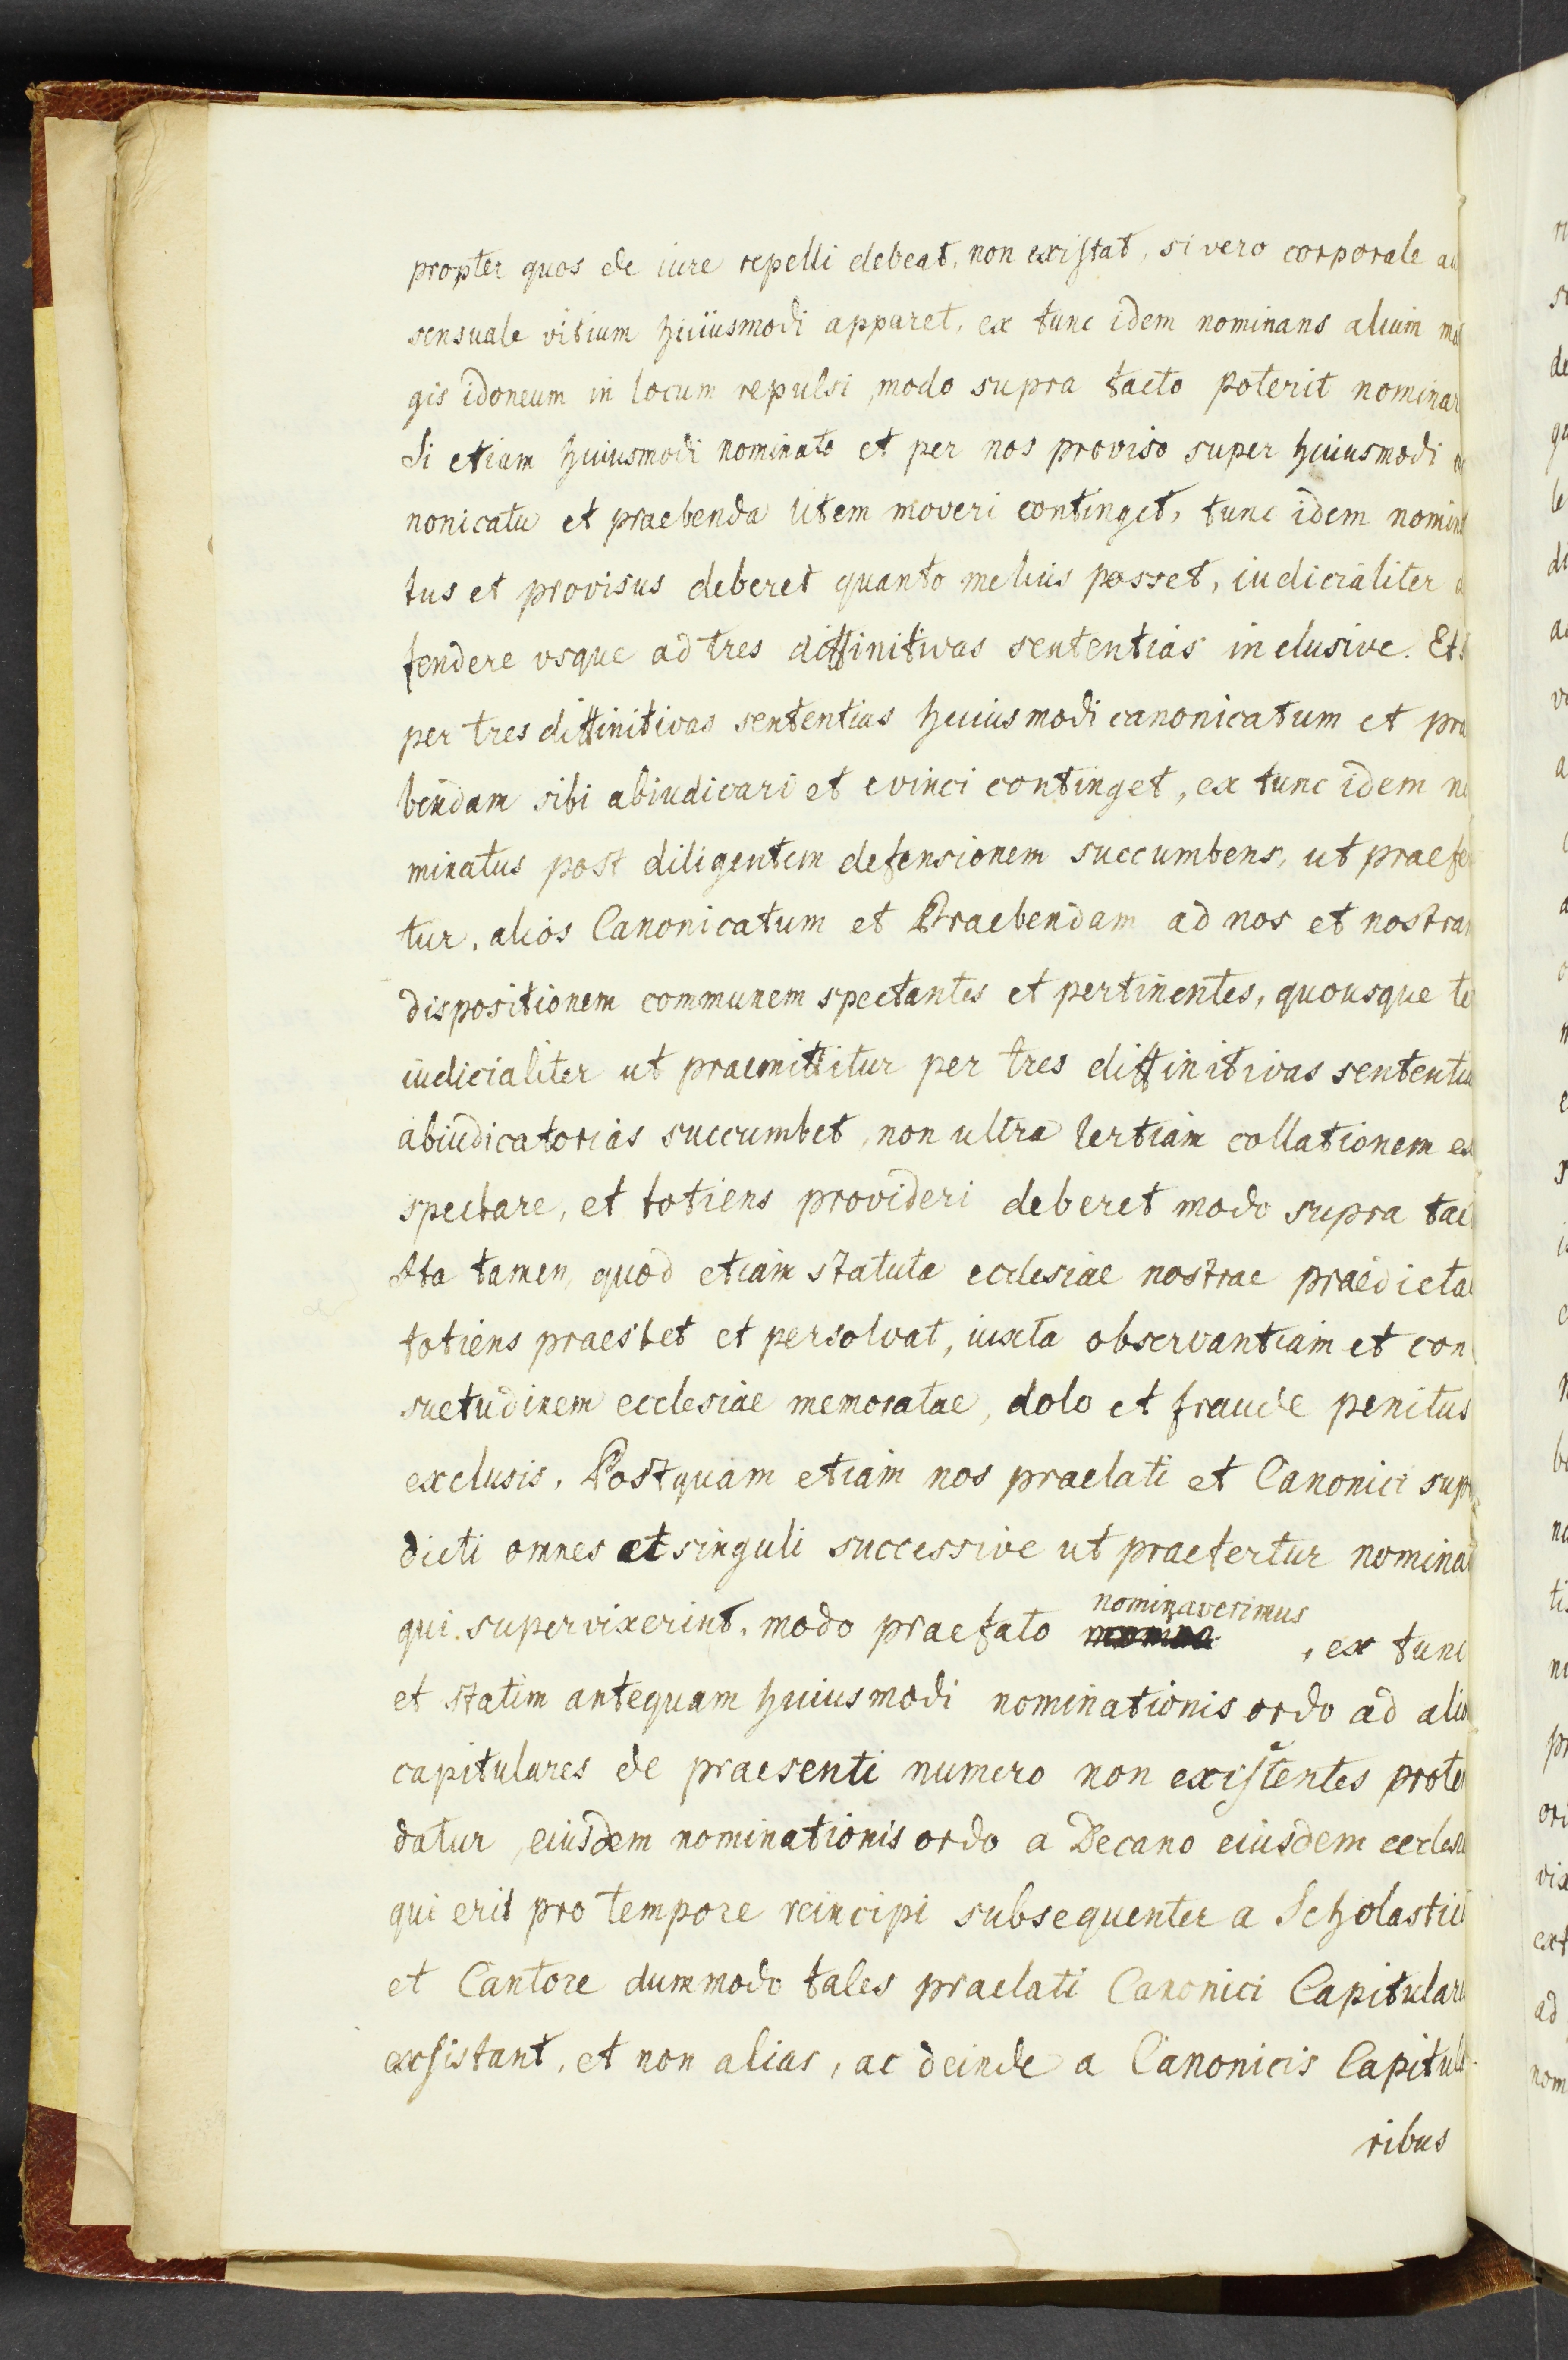 propter quos de iure repelli debeat, non existat, si vero corporale au
sensuale vitium huiusmodi apparet, ex tunc idem nominans alium ma
gis idoneum in locum repulsi, modo supra tacto poterit nominar
Si etiam huiusmodi nominato et per nos proviso super huiusmodi
nonicatu et praebenda litem moveri continget, tunc idem nomina
tus et provisus deberet quanto melius posset, iudicialiter
fendere vsque ad tres diffinitivas sententias inclusive. Et s
per tres diffinitivas sententias huiusmodi canonicatum et prae
bendam sibi abiudicari et evinci continget, ex tunc idem no
minatus post diligentem defensionem succumbens, ut praefer
tur, alios Canonicatum et Praebendam ad nos et nostram
dispositionem communem spectantes et pertinentes, quousque te
iudicialiter ut praemittitur per tres diffinitivas sententia
abiudicatorias succumbet, non ultra tertiam collationem ex
spectare, et totiens provideri deberet modo supra tact
Ita tamen, quod etiam statuta ecclesiae nostrae praedictae
totiens praestet et persolvat, iuxta observantiam et con
suetudinem ecclesiae memoratae, dolo et fraude penitus
exclusis. Postquam etiam nos praelati et Canonici supra
dicti omnes et singuli successive ut praefertur nominat
nominaverimus
qui supervixerint, modo praefato , ex tunc
et statim antequam huiusmodi nominationis ordo ad alio
capitulares de praesenti numero non existentes prote
datur, eiusdem nominationis ordo a Decano eiusdem eccles
qui erit pro tempore reincipi subsequenter a Scholastic
et Cantore dummodo tales praelati Canonici Capitular
exsistant, et non alias, ac deinde a Canonicis Capitula
ribus